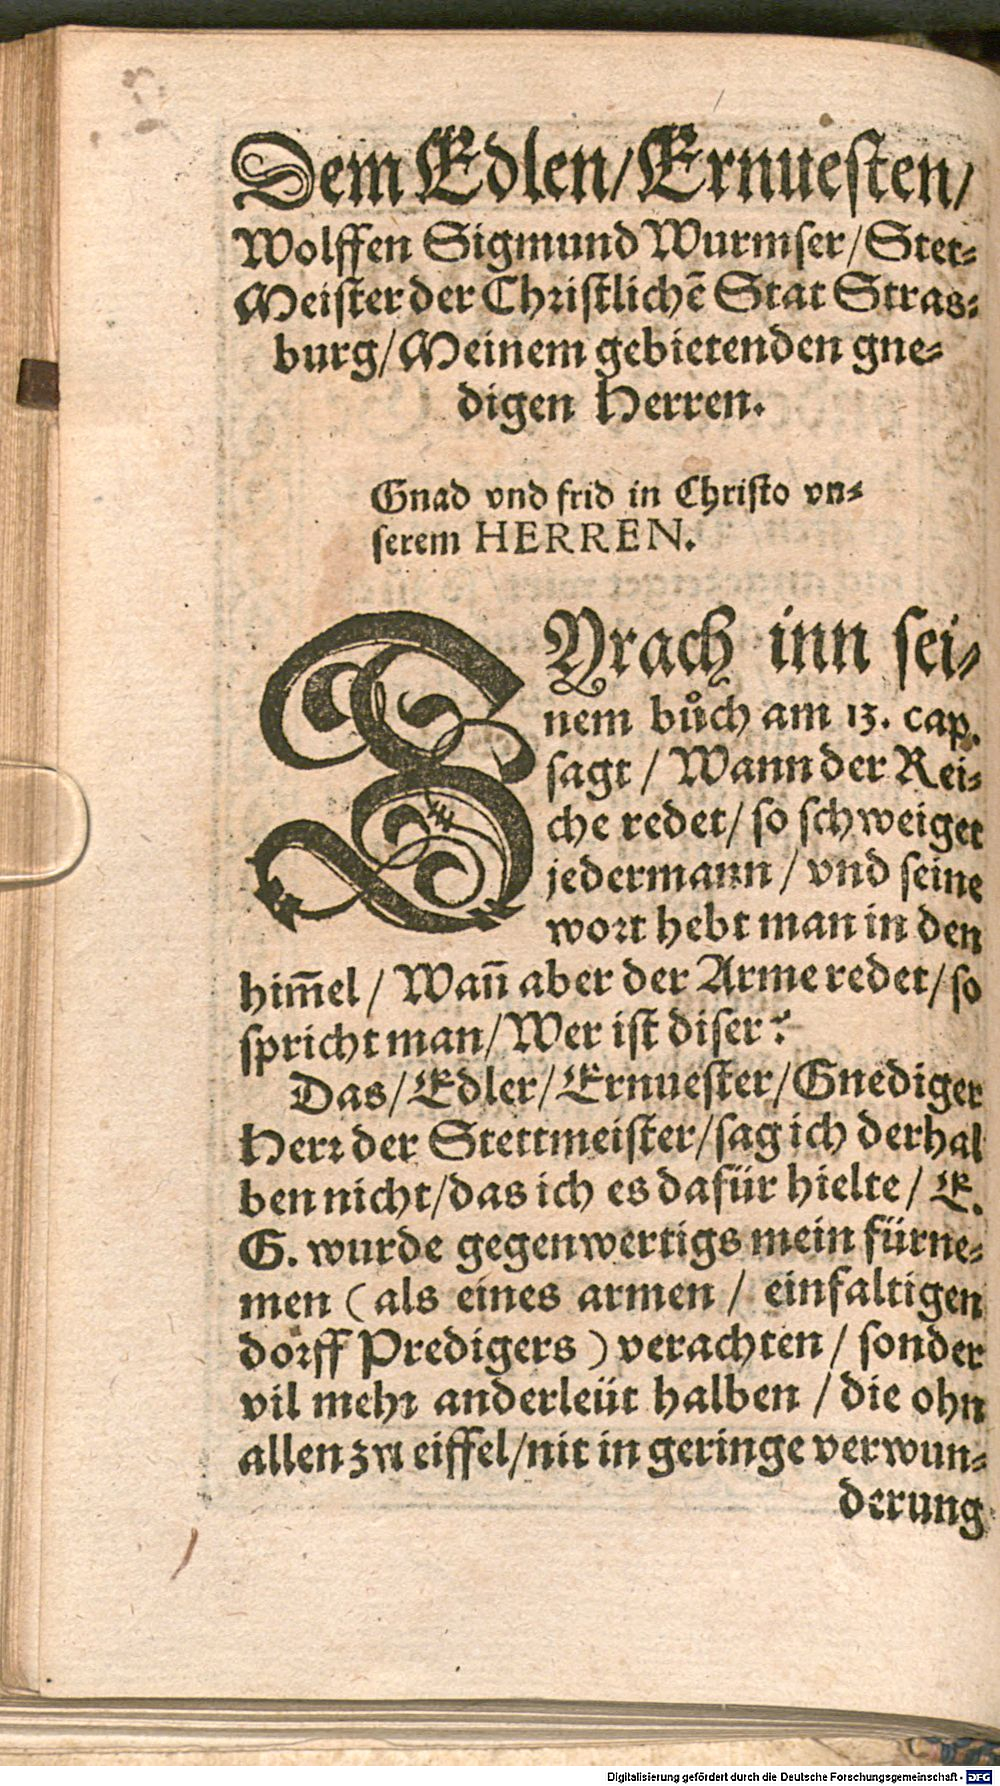 Dem Edlen/Ernuesten/
Wolffen Sigmund Wurmser/Stet-
Meister der Christlichẽ Stat Stras-
burg/Meinem gebietenden gne-
digen Herren.
Gnad vnd frid in Christo vn-
serem HERREN.
SYrach inn sei-
nem bůch am 13. cap.
sagt / Wann der Rei-
che redet/ so schweiget
jedermann / vnd seine
wort hebt man in den
him̃el / Wañ aber der Arme redet/ so
spricht man/Wer ist diser?
Das/Edler/Ernuester/Gnediger
Herr der Stettmeister/sag ich derhal
ben nicht/das ich es dafür hielte / E.
G. wurde gegenwertigs mein fürne-
men (als eines armen / einfaltigen
dorff Predigers) verachten / sonder
vil mehr anderleüt halben / die ohn
allen zweiffel/nit in geringe verwun-
derung
Digitalisierung gefördert durch die Deutsche Forschungsgemeinschaft - DFG